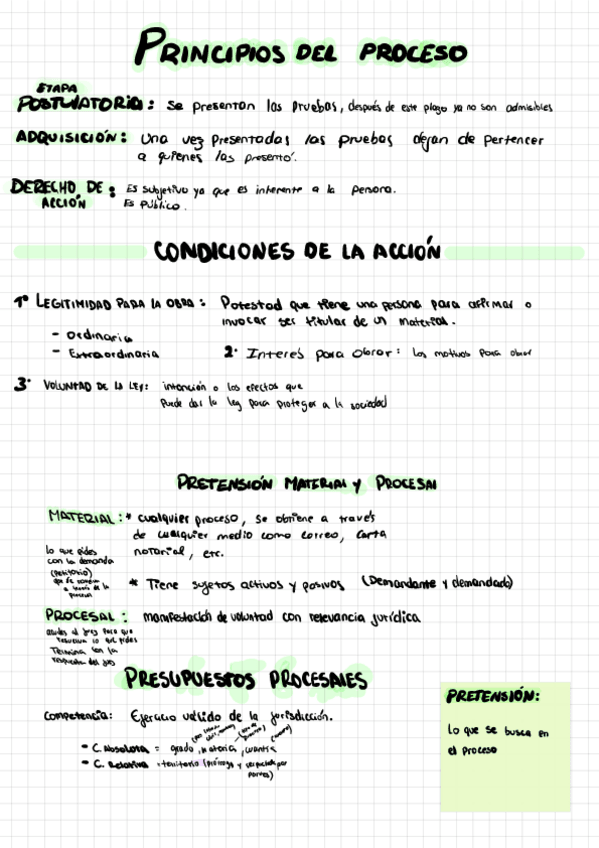 PRINCIPIOS DEL PROCESO
ETAPA
POSTULATORIA: Se presentan las pruebas, después de este plazo ya no son admisibles
ADQUISICIÓN: Una vez presentadas las pruebas dejan de pertencer
a quienes las presentó.
DERECHO DE ACCIÓN: Es subjetivo ya que es inherente a la persona.
Es público.
CONDICIONES DE LA ACCIÓN
1° LEGITIMIDAD PARA LA OBRA: Potestad que tiene una persona para afirmar o
invocar ser titular de un material.
- Ordinaria
- Extraordinaria
2° Interés para Obrar: los motivos para obrar
3° VOLUNTAD DE LA LEY: intención o los efectos que
puede dar la ley para proteger a la sociedad
PRETENSIÓN MATERIAL y PROCESAL
MATERIAL: * cualquier proceso, se obtiene a través
de cualquier medio como correo, carta
notarial, etc.
lo que pides
con la demanda
(Petitorio)
* Tiene sujetos activos y pasivos (Demandante y demandado)
PROCESAL: manifestación de voluntad con relevancia jurídica
acudes al juez para que
resuelva lo que pides
Termina con la
respuesta del juez
PRESUPUESTOS PROCESALES
Competencia: Ejercicio válido de la jurisdicción.
• C. Absoluta = grado, materia, cuantía
• C. Relativa = territorio (prórroga
partes)
PRETENSIÓN:
lo que se busca en
el proceso